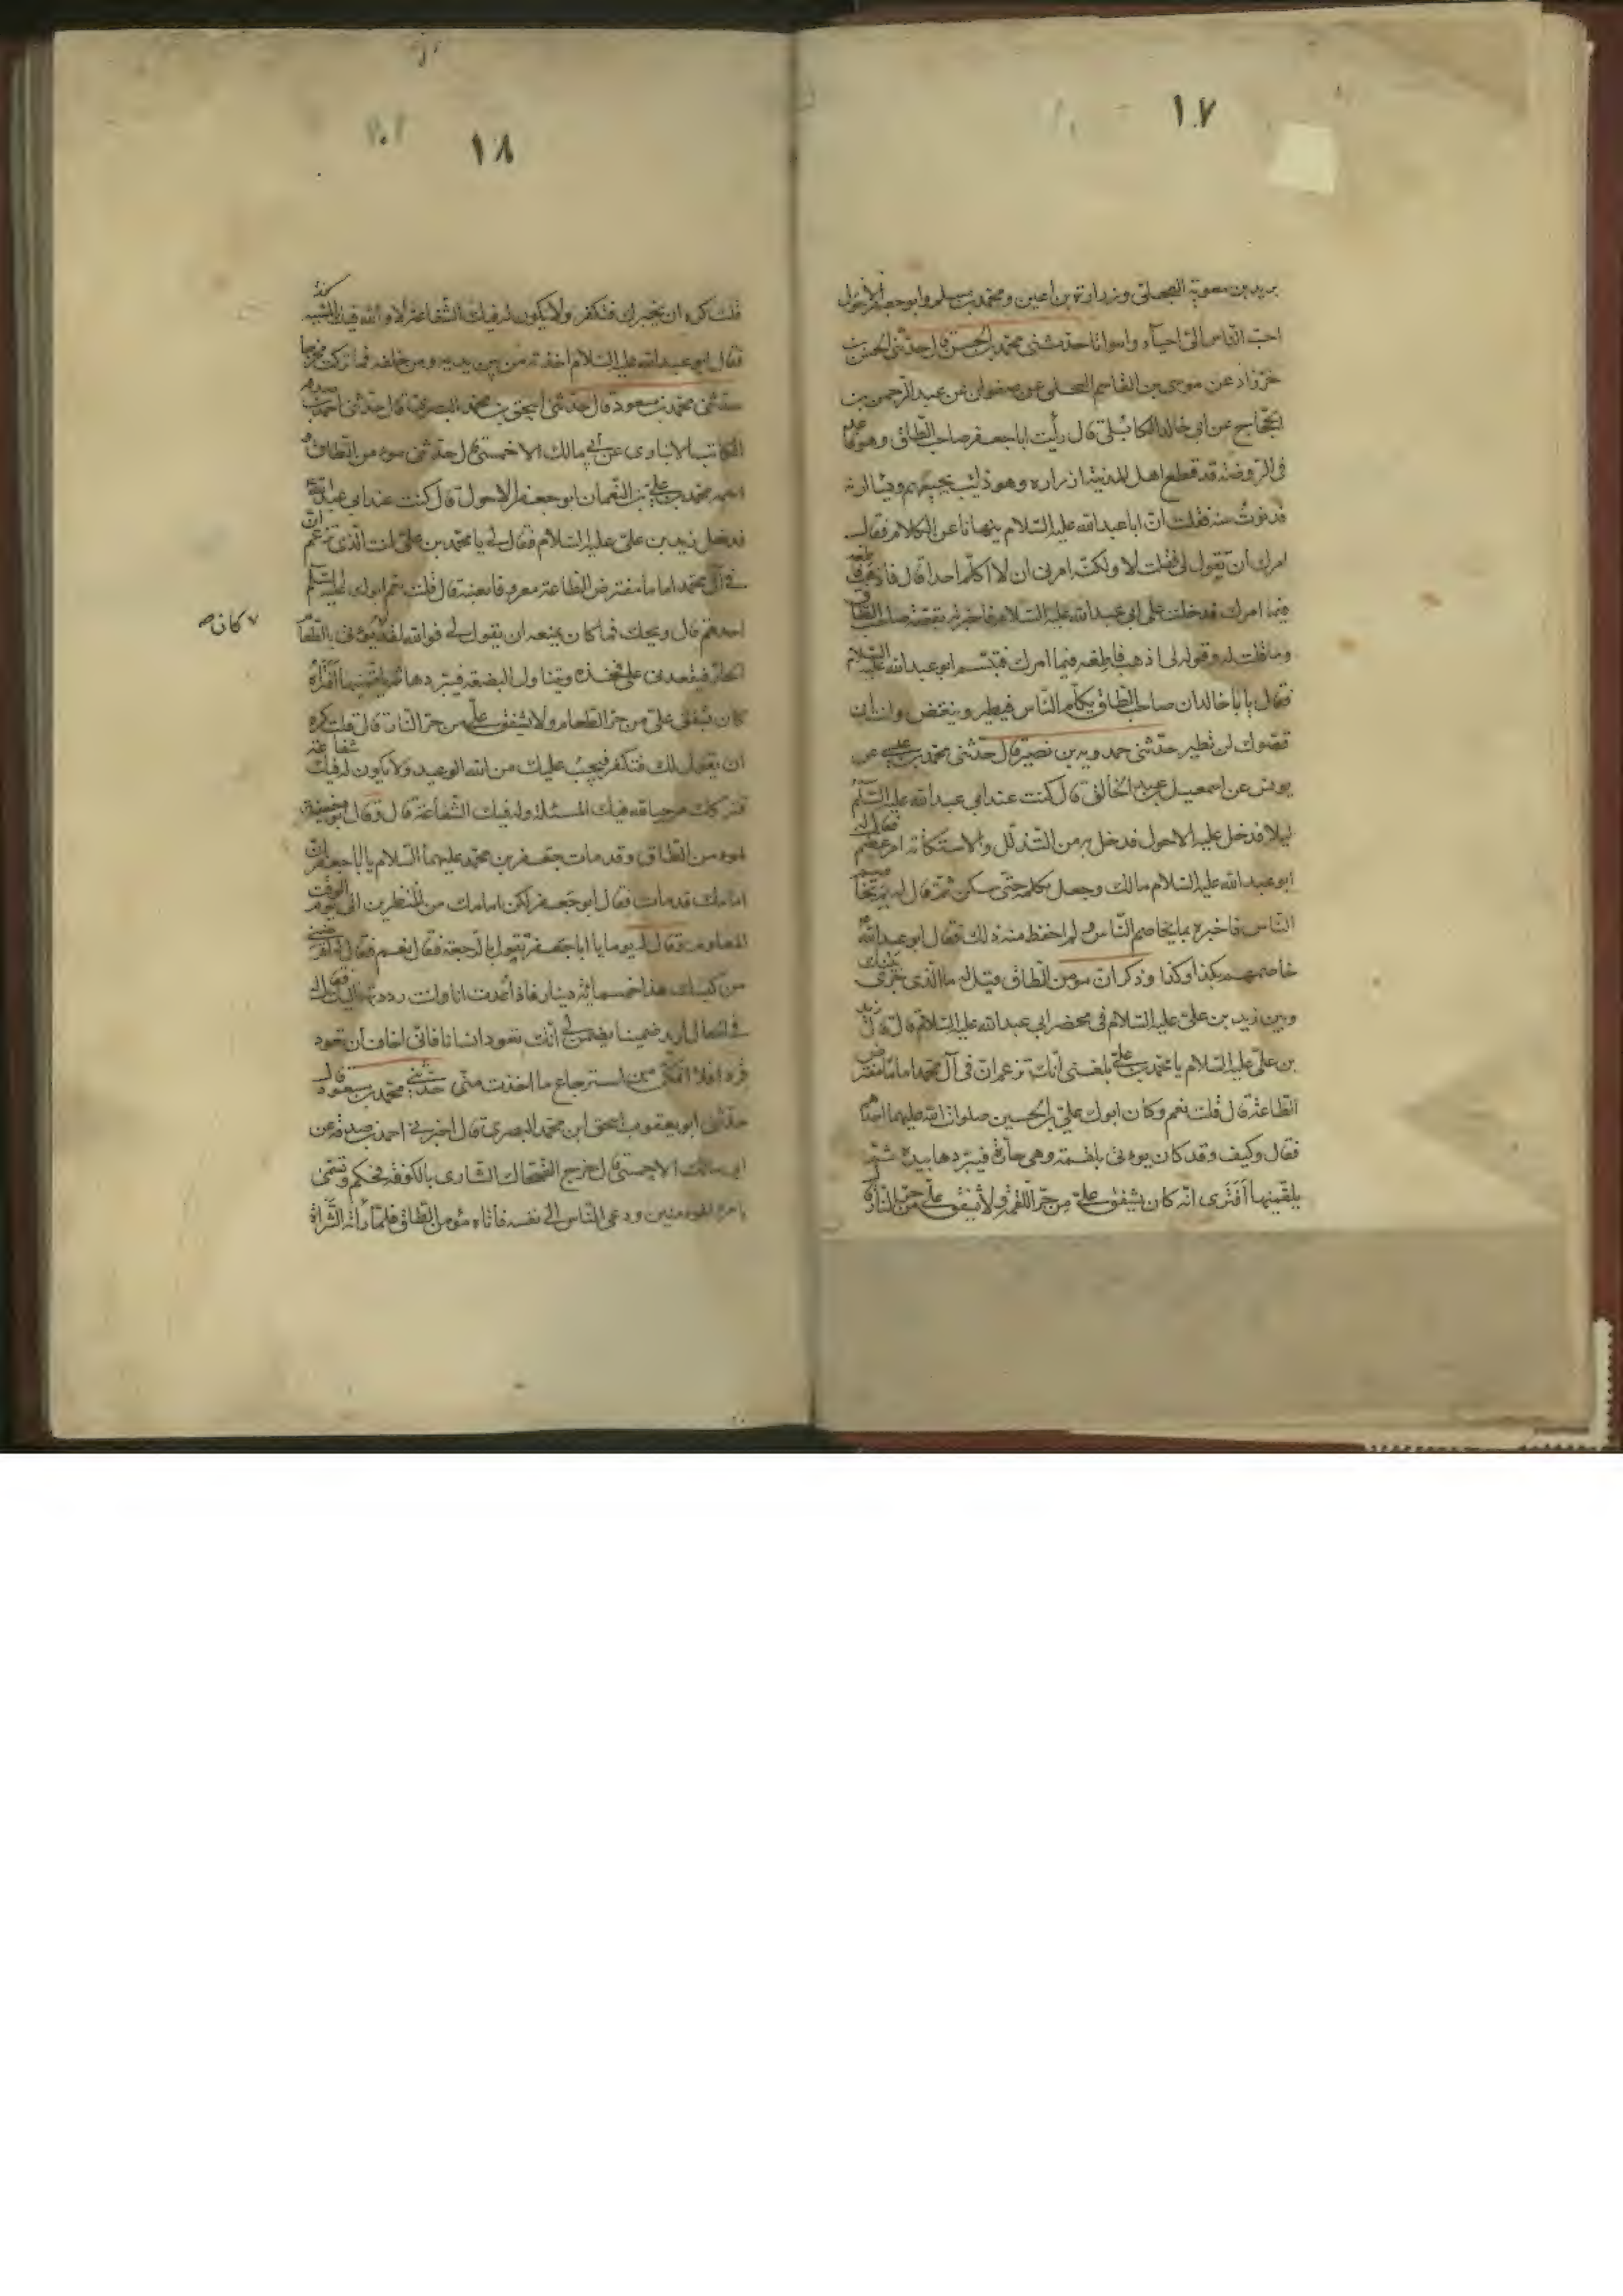 ١٠٧
بريد بن معوية العجلي وزرارة بن اعين ومحمد بن مسلم وابو جعفر الاحول
احب الناس الي احياء وامواتا حدثني محمد بن الحسن قال حدثني الحسن بن
خرزاد عن موسى بن القاسم البجلي عن صفوان عن عبد الرحمن بن
الحجاج عن ابي خالد الكابلي قال رأيت ابا جعفر صاحب الطاق وهو قاعد
في الروضة قد قطع اهل المدينة ازراره وهو دائب يجيبهم ويسالونه
فدنوت منه فقلت ان ابا عبد الله عليه السلام ينهانا عن الكلام فقال
امرك ان تقول لي فقلت لا ولكنه امرني ان لا اكلم احدا قال فاذهب فاطعه
فيما امرك فدخلت على ابي عبد الله عليه السلام فاخبرته بقصة صاحب الطاق
وما قلت له وقوله لي اذهب فاطعه فيما امرك فتبسم ابو عبد الله عليه السلام
فقال يا با خالد ان صاحب الطاق يكلم الناس فيطير وينقض وانت ان
قصوك لن تطير حدثني حمدويه بن نصير قال حدثني محمد بن عيسى عن
يونس عن اسمعيل بن عبد الخالق قال كنت عند ابي عبد الله عليه السلم
ليلا فدخل عليه الاحول فدخل به من التذلل والاستكانة امر عظيم فقال له
ابو عبد الله عليه السلام مالك وجعل يكلمه حتى سكن ثم قال له بم تخاصم
الناس فاخبره بما يخاصم الناس ولم احفظ منه ذلك فقال ابو عبد الله ع
خاصمهم بكذا وكذا وذكر ان مومن الطاق قيل له ما الذي جرى بينك
وبين زيد بن علي عليه السلام في محضر ابي عبد الله عليه السلام قال قال زيد
بن علي عليه السلام يا محمد بن علي بلغني انك تزعم ان في آل محمد اماما مفترض
الطاعة قال قلت نعم وكان ابوك علي بن الحسين صلوات الله عليهما احدهم
فقال وكيف وقد كان يوتى بلقمة وهي حارة فيبردها بيده ثم
يلقمنيها أفترى انه كان يشفق علي من حر اللقمة ولا يشفق علي من حر النار قال
١٠٨
قلت كره ان يخبرك فتكفر ولا يكون له فيك الشفاعة لا والله فيك المشية
فقال ابو عبد الله عليه السلام اخذته من بين يديه ومن خلفه فما تركت مخرجا
حدثني محمد بن مسعود قال حدثني اسحق بن محمد البصري قال حدثني احمد بن صدقة
الكاتب الانباري عن أبي مالك الاحمسي قال حدثني مومن الطاق و
اسمه محمد بن علي بن النعمان ابو جعفر الاحول قال كنت عند ابي عبد الله ع
فدخل زيد بن علي عليه السلام فقال لي يا محمد بن علي انت الذي تزعم ان
في آل محمد اماما مفترض الطاعة معروفا بعينه قال قلت نعم ابوك عليه السلم
احدهم قال ويحك فما كان يمنعه ان يقول لي فوالله لقد يؤتى بالطعام
كان ص
الحار فيقعدني على فخذه ويتناول البضعة فيبردها ثم يلقمنيها أفتراه
كان يشفق علي من حر الطعام ولا يشفق علي من حر النار قال قلت كره
ان يقول لك فتكفر فيجب عليك من الله الوعيد ولا يكون له فيك شفاعة
فتركك مرجيا فيك المسئلة وله فيك الشفاعة قال وقال ابو حنيفة
لمومن الطاق وقد مات جعفر بن محمد عليهما السلام يا ابا جعفر ان
امامك قد مات فقال ابو جعفر لكن امامك من المنظرين الى يوم الوقت
المعلوم وقال له يوما يا ابا جعفر تقول بالرجعة فقال نعم فقال له اقرضني
من كيسك هذا خمسمائة دينار فاذا عدت انا وانت رددتها اليك فقال له
في الحال اريد ضمينا يضمن لي انك تعود انسانا فاني اخاف ان تعود
قردا فلا اتمكن من استرجاع ما اخذت مني حدثني محمد بن مسعود قال
حدثني ابو يعقوب اسحق ابن محمد البصري قال اخبرني احمد بن صدقة عن
ابي مالك الاحمسي قال خرج الضحاك الشاري بالكوفة فحكم وتسمى
بامرة المؤمنين ودعى الناس الى نفسه فأتاه مؤمن الطاق فلما رأته الشراة